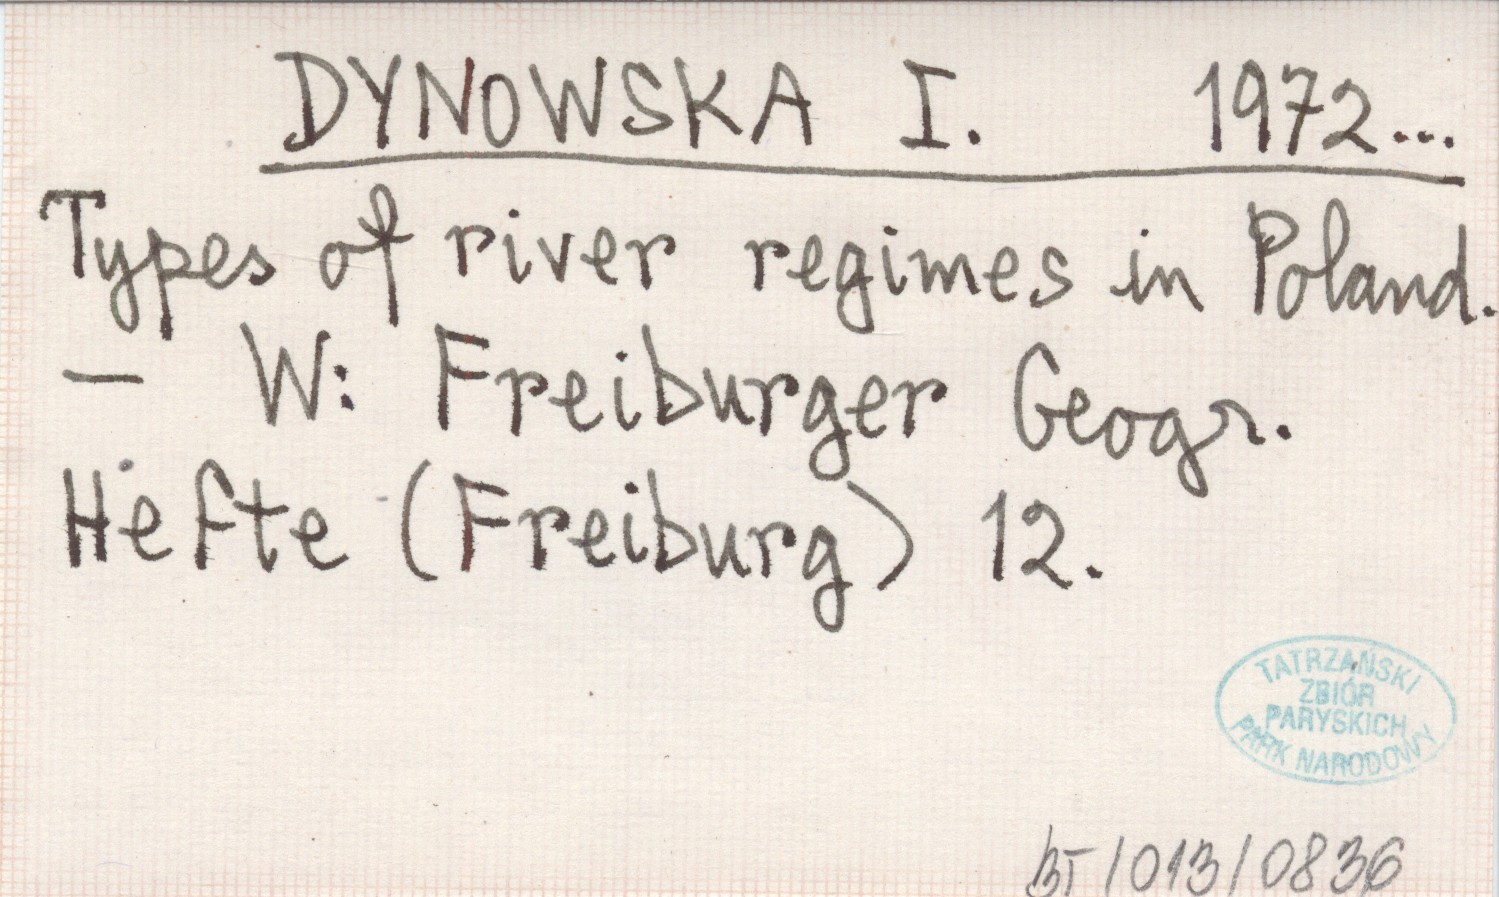 DYNOWSKA I. 1972...
Types of river regimes in Poland.
— W: Freiburger Geogr.
Hefte (Freiburg) 12.
TATRZAŃSKI
ZBIÓR
PARYSKICH
PARK NARODOWY
BT/013/0836